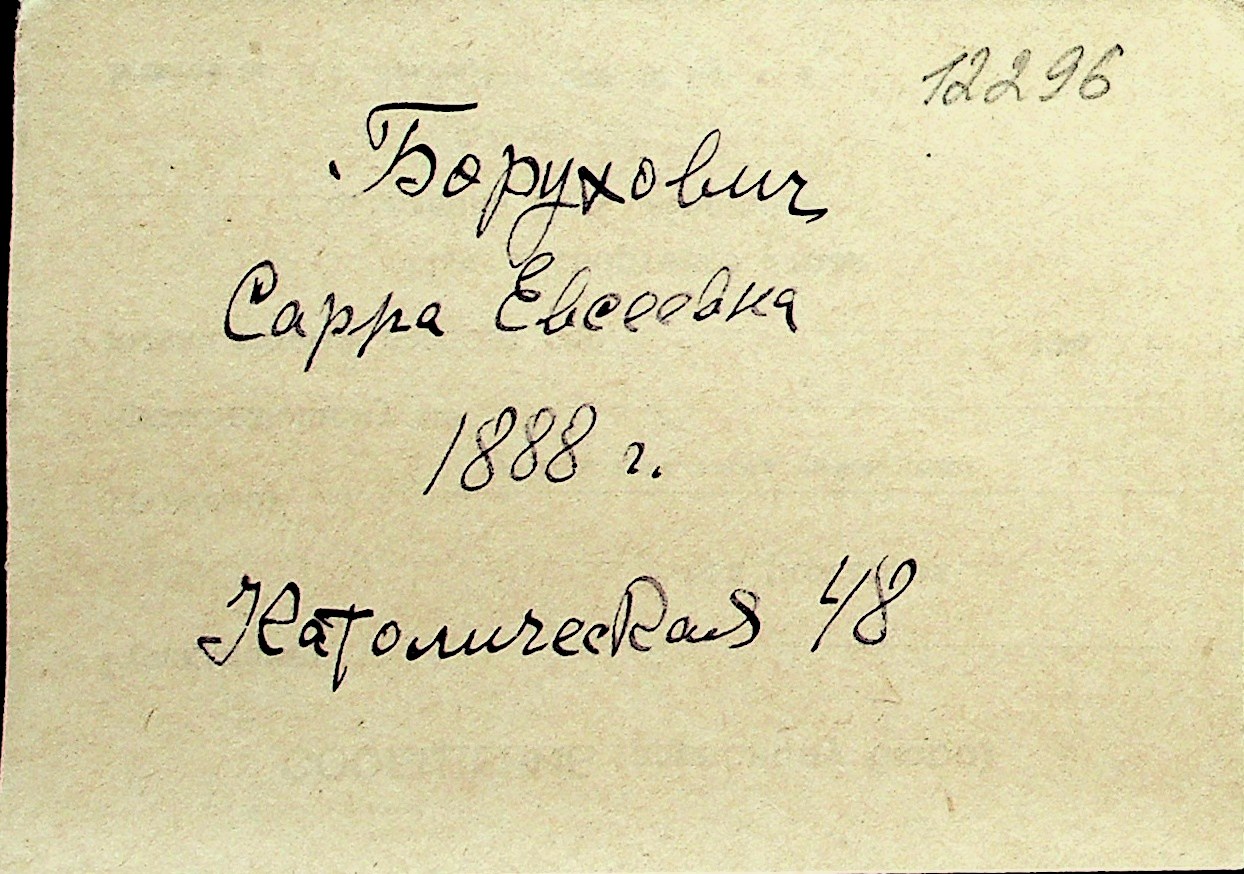 12296
Борухович
Сарра Евсеевна
1888 г.
Католическая 48